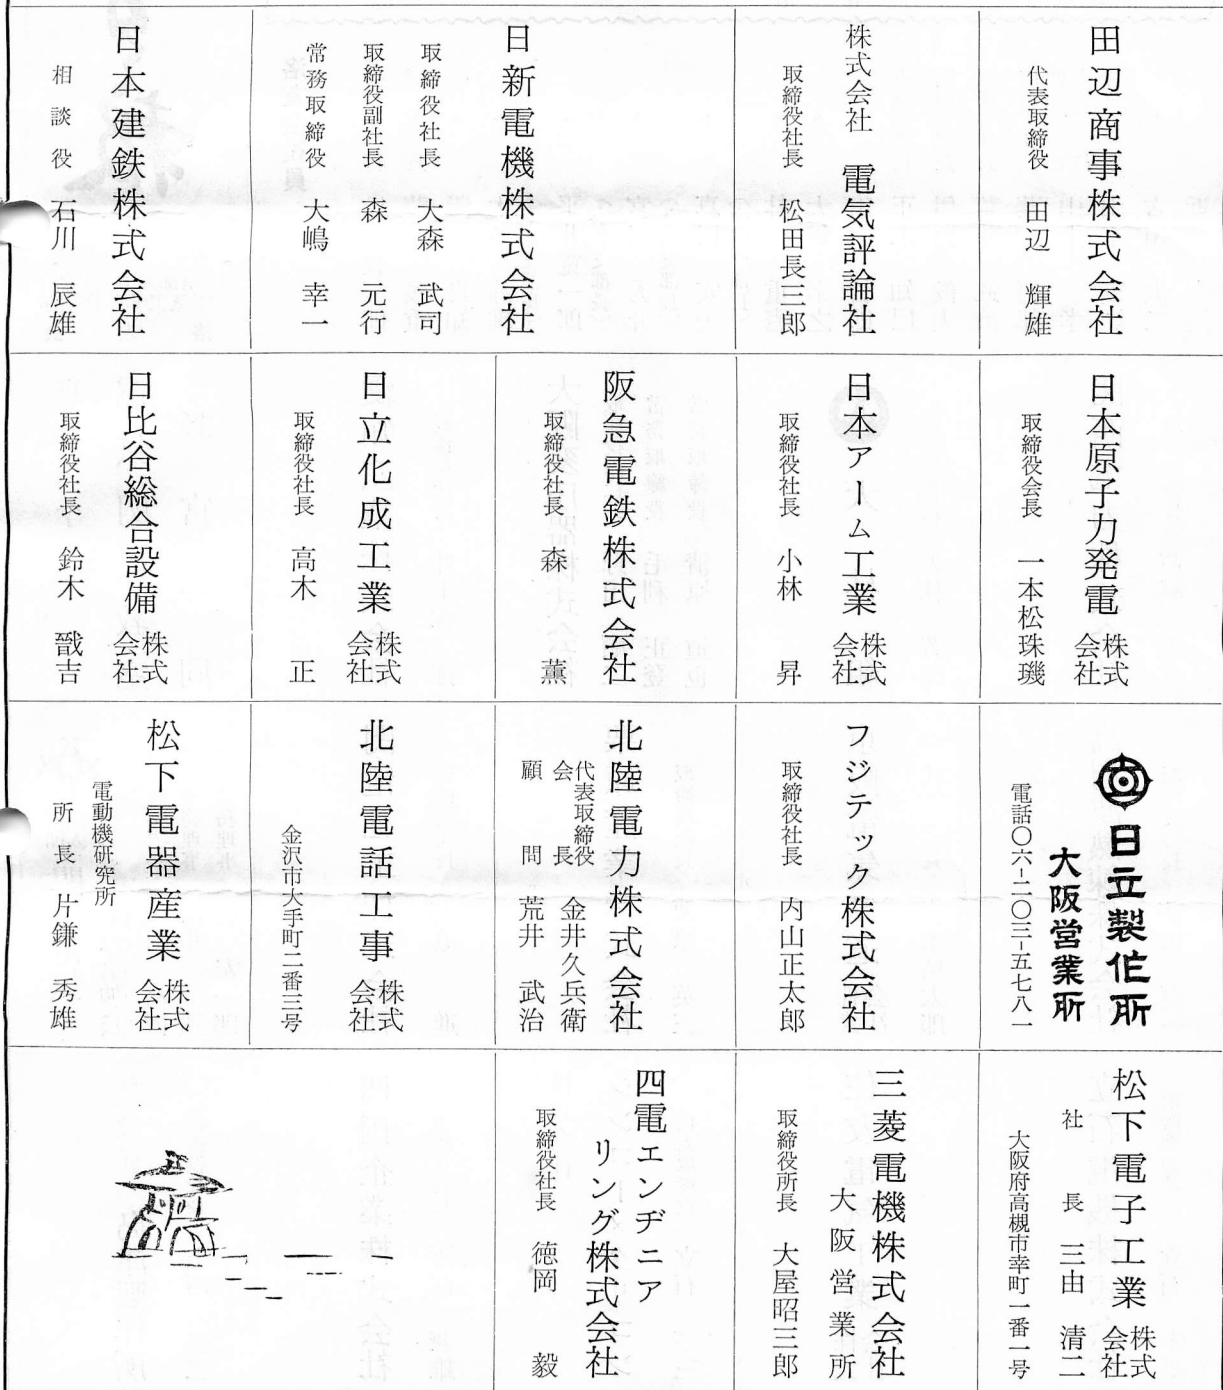 田辺商事株式会社
代表取締役 田辺 輝雄
株式会社 電気評論社
取締役社長 松田長三郎
日新電機株式会社
取締役社長 大森 武司
取締役副社長 森 元行
常務取締役 大嶋 幸一
日本建鉄株式会社
相談役 石川 辰雄
日本原子力発電株式会社
取締役会長 一本松珠璣
日本アーム工業株式会社
取締役社長 小林 昇
阪急電鉄株式会社
取締役社長 森 薫
日立化成工業株式会社
取締役社長 高木 正
日比谷総合設備株式会社
取締役社長 鈴木 戩吉
日立製作所
大阪営業所
電話〇六-二〇三-五七八一
フジテック株式会社
取締役社長 内山正太郎
北陸電力株式会社
代表取締役
会長 金井久兵衛
顧問 荒井 武治
北陸電話工事株式会社
金沢市大手町二番三号
松下電器産業株式会社
電動機研究所
所長 片鎌 秀雄
松下電子工業株式会社
社長 三由 清二
大阪府高槻市幸町一番一号
三菱電機株式会社
大阪営業所
取締役所長 大屋昭三郎
四電エンヂニア
リング株式会社
取締役社長 徳岡 毅